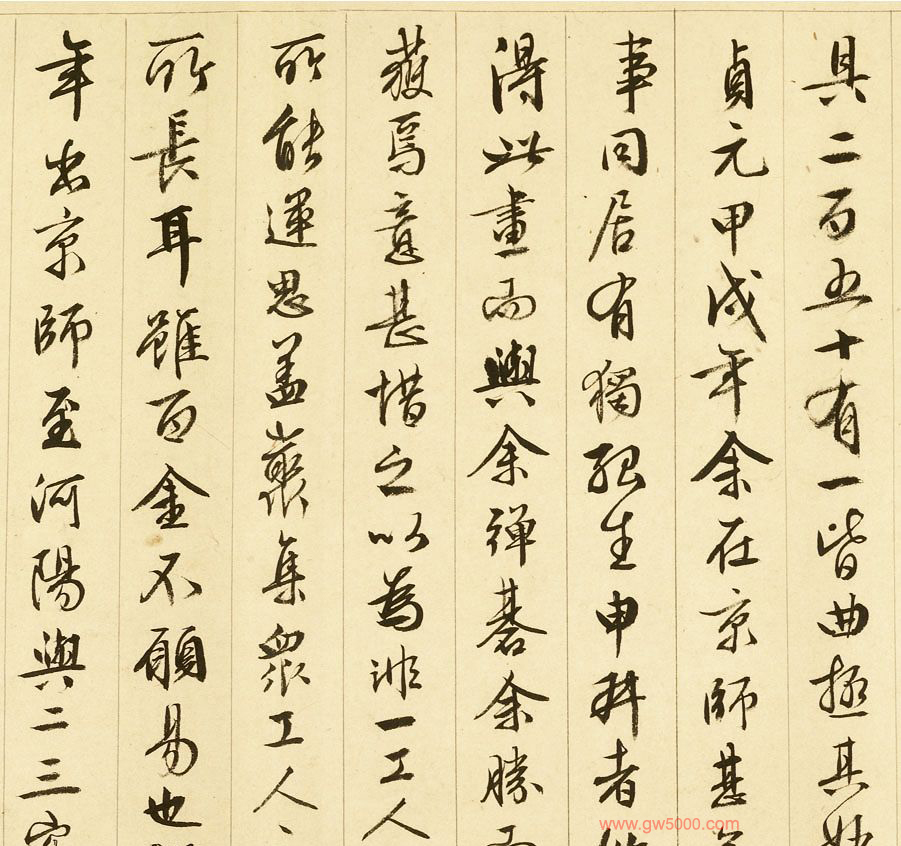 具二百五十有一皆曲極其妙
貞元甲戌年余在京師甚無
事同居有獨孤生申叔者始
得此畫而與余彈碁余勝而
獲焉意甚惜之以為非一工人
所能運思蓋藂集衆工人之
所長耳雖百金不願易也
年出京師至河陽與二三客
www.gw5000.com